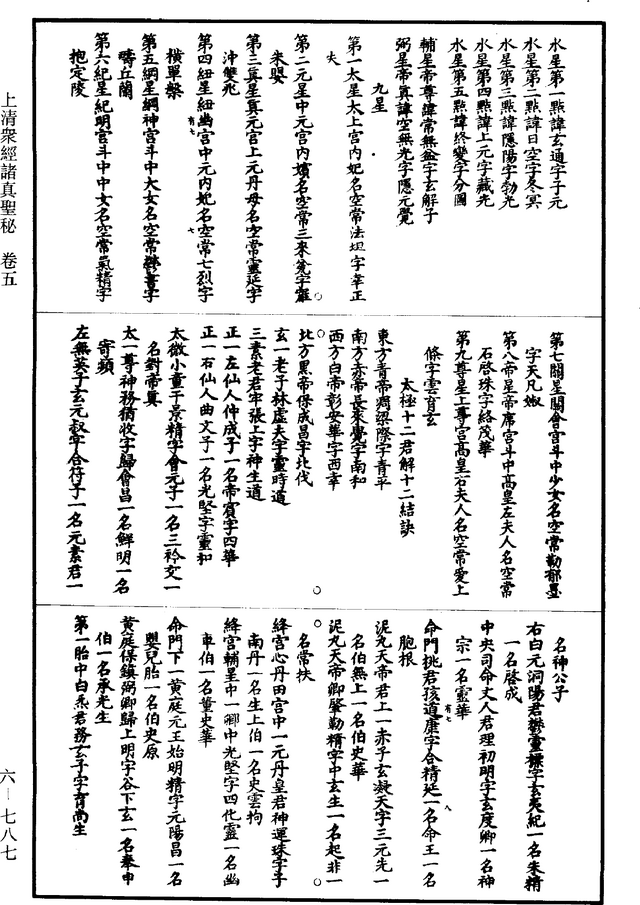 水星第一點諱玄通字子元
水星第二點諱日空字冬冥
水星第三點諱隱陽字勃光
水星第四點諱上元字藏光
水星第五點諱終變字分圓
輔星帝尊諱常無盆字玄解子
弼星帝真諱空無光字隱元覺
九星
第一太星太上宮內妃名空常法坦字幸正
夫
第二元星中元宮內嬪名空常三來瓫字䨥
朱嬰
第三真星真元宮上元丹母名空常靈延字
沖雙飛
第四紐星紐幽宮中元內妃名空常七烈字
橫單槃
第五綱星綱神宮斗中大女名空常書字
疇丘蘭
第六紀星紀明宮斗中中女名空常氣精字
抱定陵
第七關星關會宮斗中少女名空常勒郁墨
字天凡
第八帝星帝席宮斗中高皇左夫人名空常
石啓珠字絡茂華
第九尊星上尊宮高皇右夫人名空常愛上
條字雲育玄
太極十二君解十二結訣
東方青帝際字青平
南方赤帝長來覺字南和
西方白帝彰安華字西幸
北方黑帝保成昌字北伐
玄一老子林虛夫字靈時道
三素老君牢張上字神生道
正一左仙人仲成子一名帝賓字四華
正一右仙人曲文子一名光堅字靈和
太微小童干景精字會元子一名三衿一
名對帝真
太一尊神務猶收字歸會昌一名鮮明一名
寄頻
左無英子玄元叔字合符子一名元素君一
名神公子
右白元洞陽君鬱靈標字玄夷紀一名朱精
一名啓成
中央司命丈人君理初明字玄度卿一名神
宗一名靈華
命門桃君孩道康字合精延一名命王一名
胞根
泥丸天帝君上一赤子玄凝天字三元先一
名伯無上一名伯史華
泥丸天帝卿肇勒精字中玄生一名起非一
名常扶
絳宮心丹田宮中一元丹皇君神運珠字子
南丹一名生上伯一名史雲拘
絳宮輔星中一卿中光堅字四化靈一名幽
車伯一名董史華
命門下一黃庭元王始明精字元陽昌一名
嬰兒胎一名伯史原
黃庭保鎮弼卿歸上明字谷下玄一名奉申
伯一名承光生
第一胎中白炁君務玄子字育尚生
上清衆經諸真聖秘 卷五
六—七八七